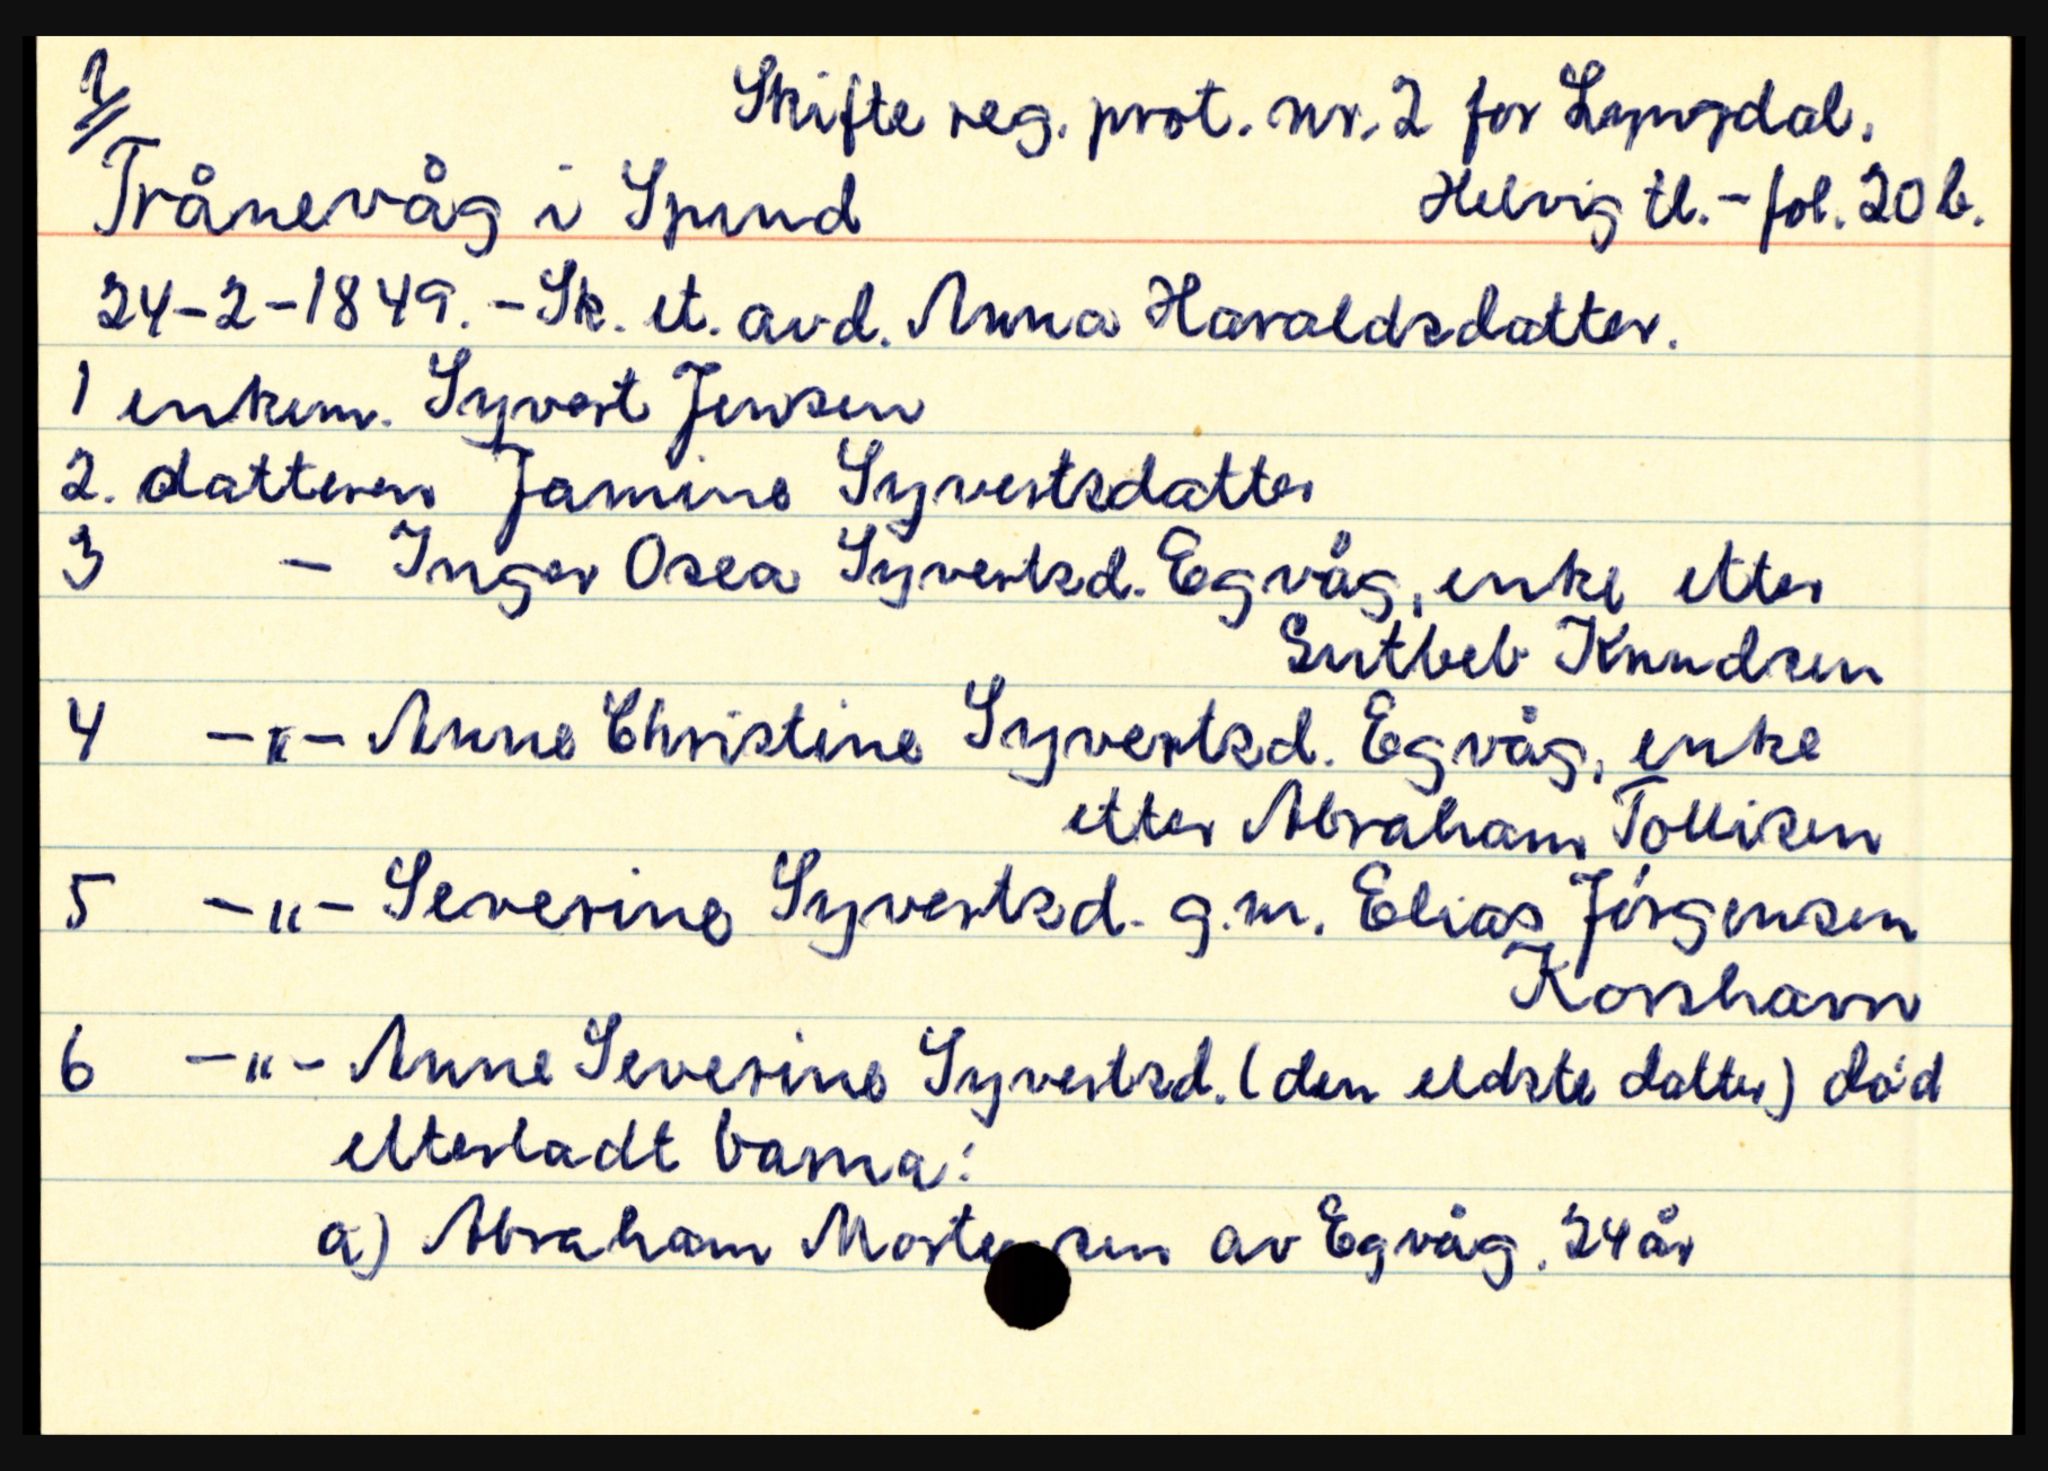 1/
Skifte reg. prot. nr. 2 for Lyngdal.
Trånevåg i Spind
Helvig tl. - fol. 20 b.
24-2-1849. - Sk. et. avd. Anna Haraldsdatter.
1 enkem. Syvert Jensen
2. datteren Jamine Syvertsdatter
3 - Inger Osea Syvertsd. Egvåg, enke etter
Knudsen
4 -"- Anne Christine Syvertsd. Egvåg, enke
etter Abraham Tollisen
5 -"- Severine Syvertsd. g.m. Elias Jörgensen
Korshavn
6 -"- Anne Severine Syvertsd. (den eldste datter) död
etterladt barna:
a) Abraham Mortensen av Egvåg. 24 år